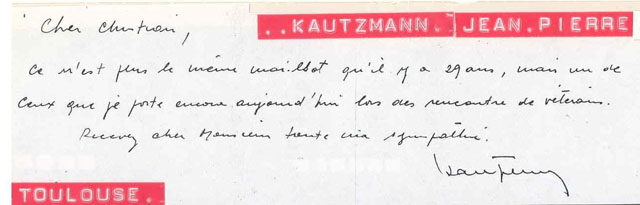 Cher Christian,
.. KAUTZMANN.. JEAN.PIERRE
Ce n'est plus le même maillot qu'il y a 29 ans, mais un de
ceux que je porte encore aujourd'hui lors des rencontre de vétérans.
Recevez cher Monsieur toute ma sympathie.
TOULOUSE..